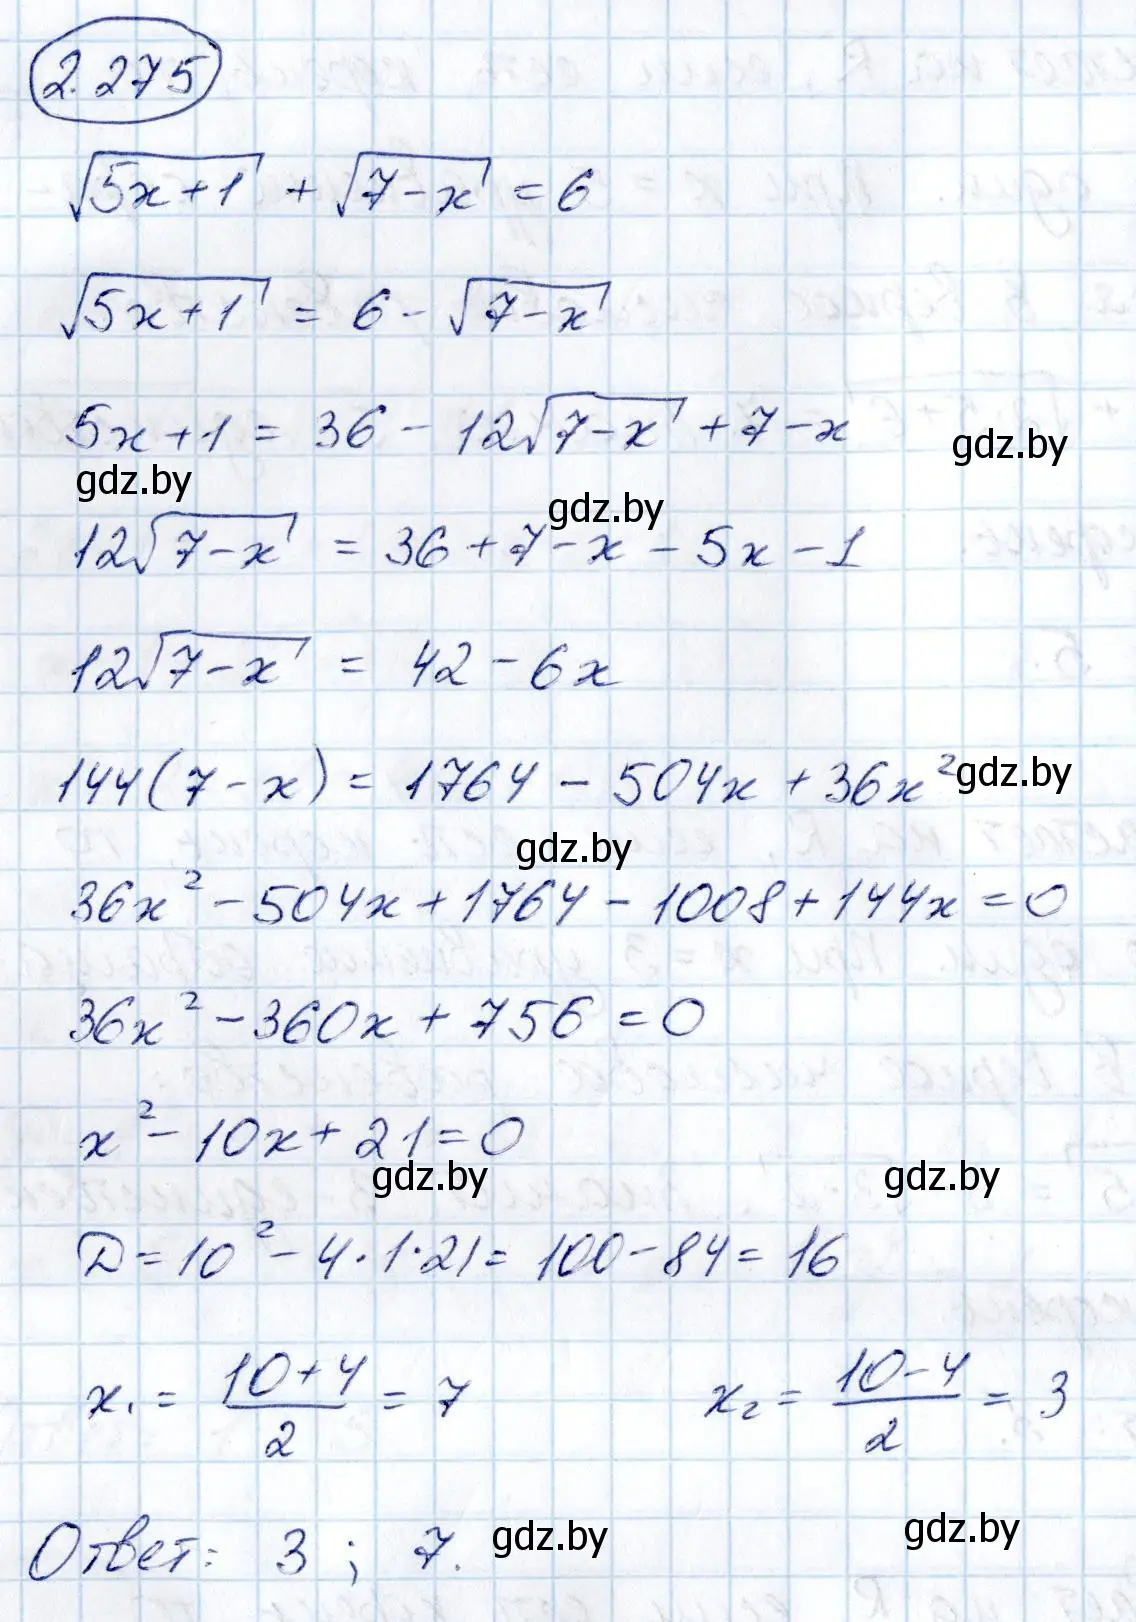 2.275
√(5x+1) + √(7-x) = 6
√(5x+1) = 6 - √(7-x)
5x+1 = 36 - 12√(7-x) + 7 - x
gdz.by
gdz.by
gdz.by
12√(7-x) = 36 + 7 - x - 5x - 1
12√(7-x) = 42 - 6x
144(7-x) = 1764 - 504x + 36x²
gdz.by
gdz.by
36x² - 504x + 1764 - 1008 + 144x = 0
36x² - 360x + 756 = 0
x² - 10x + 21 = 0
gdz.by
gdz.by
D = 10² - 4·1·21 = 100 - 84 = 16
x₁ = (10+4)/2 = 7 x₂ = (10-4)/2 = 3
Ответ: 3; 7.
gdz.by
gdz.by